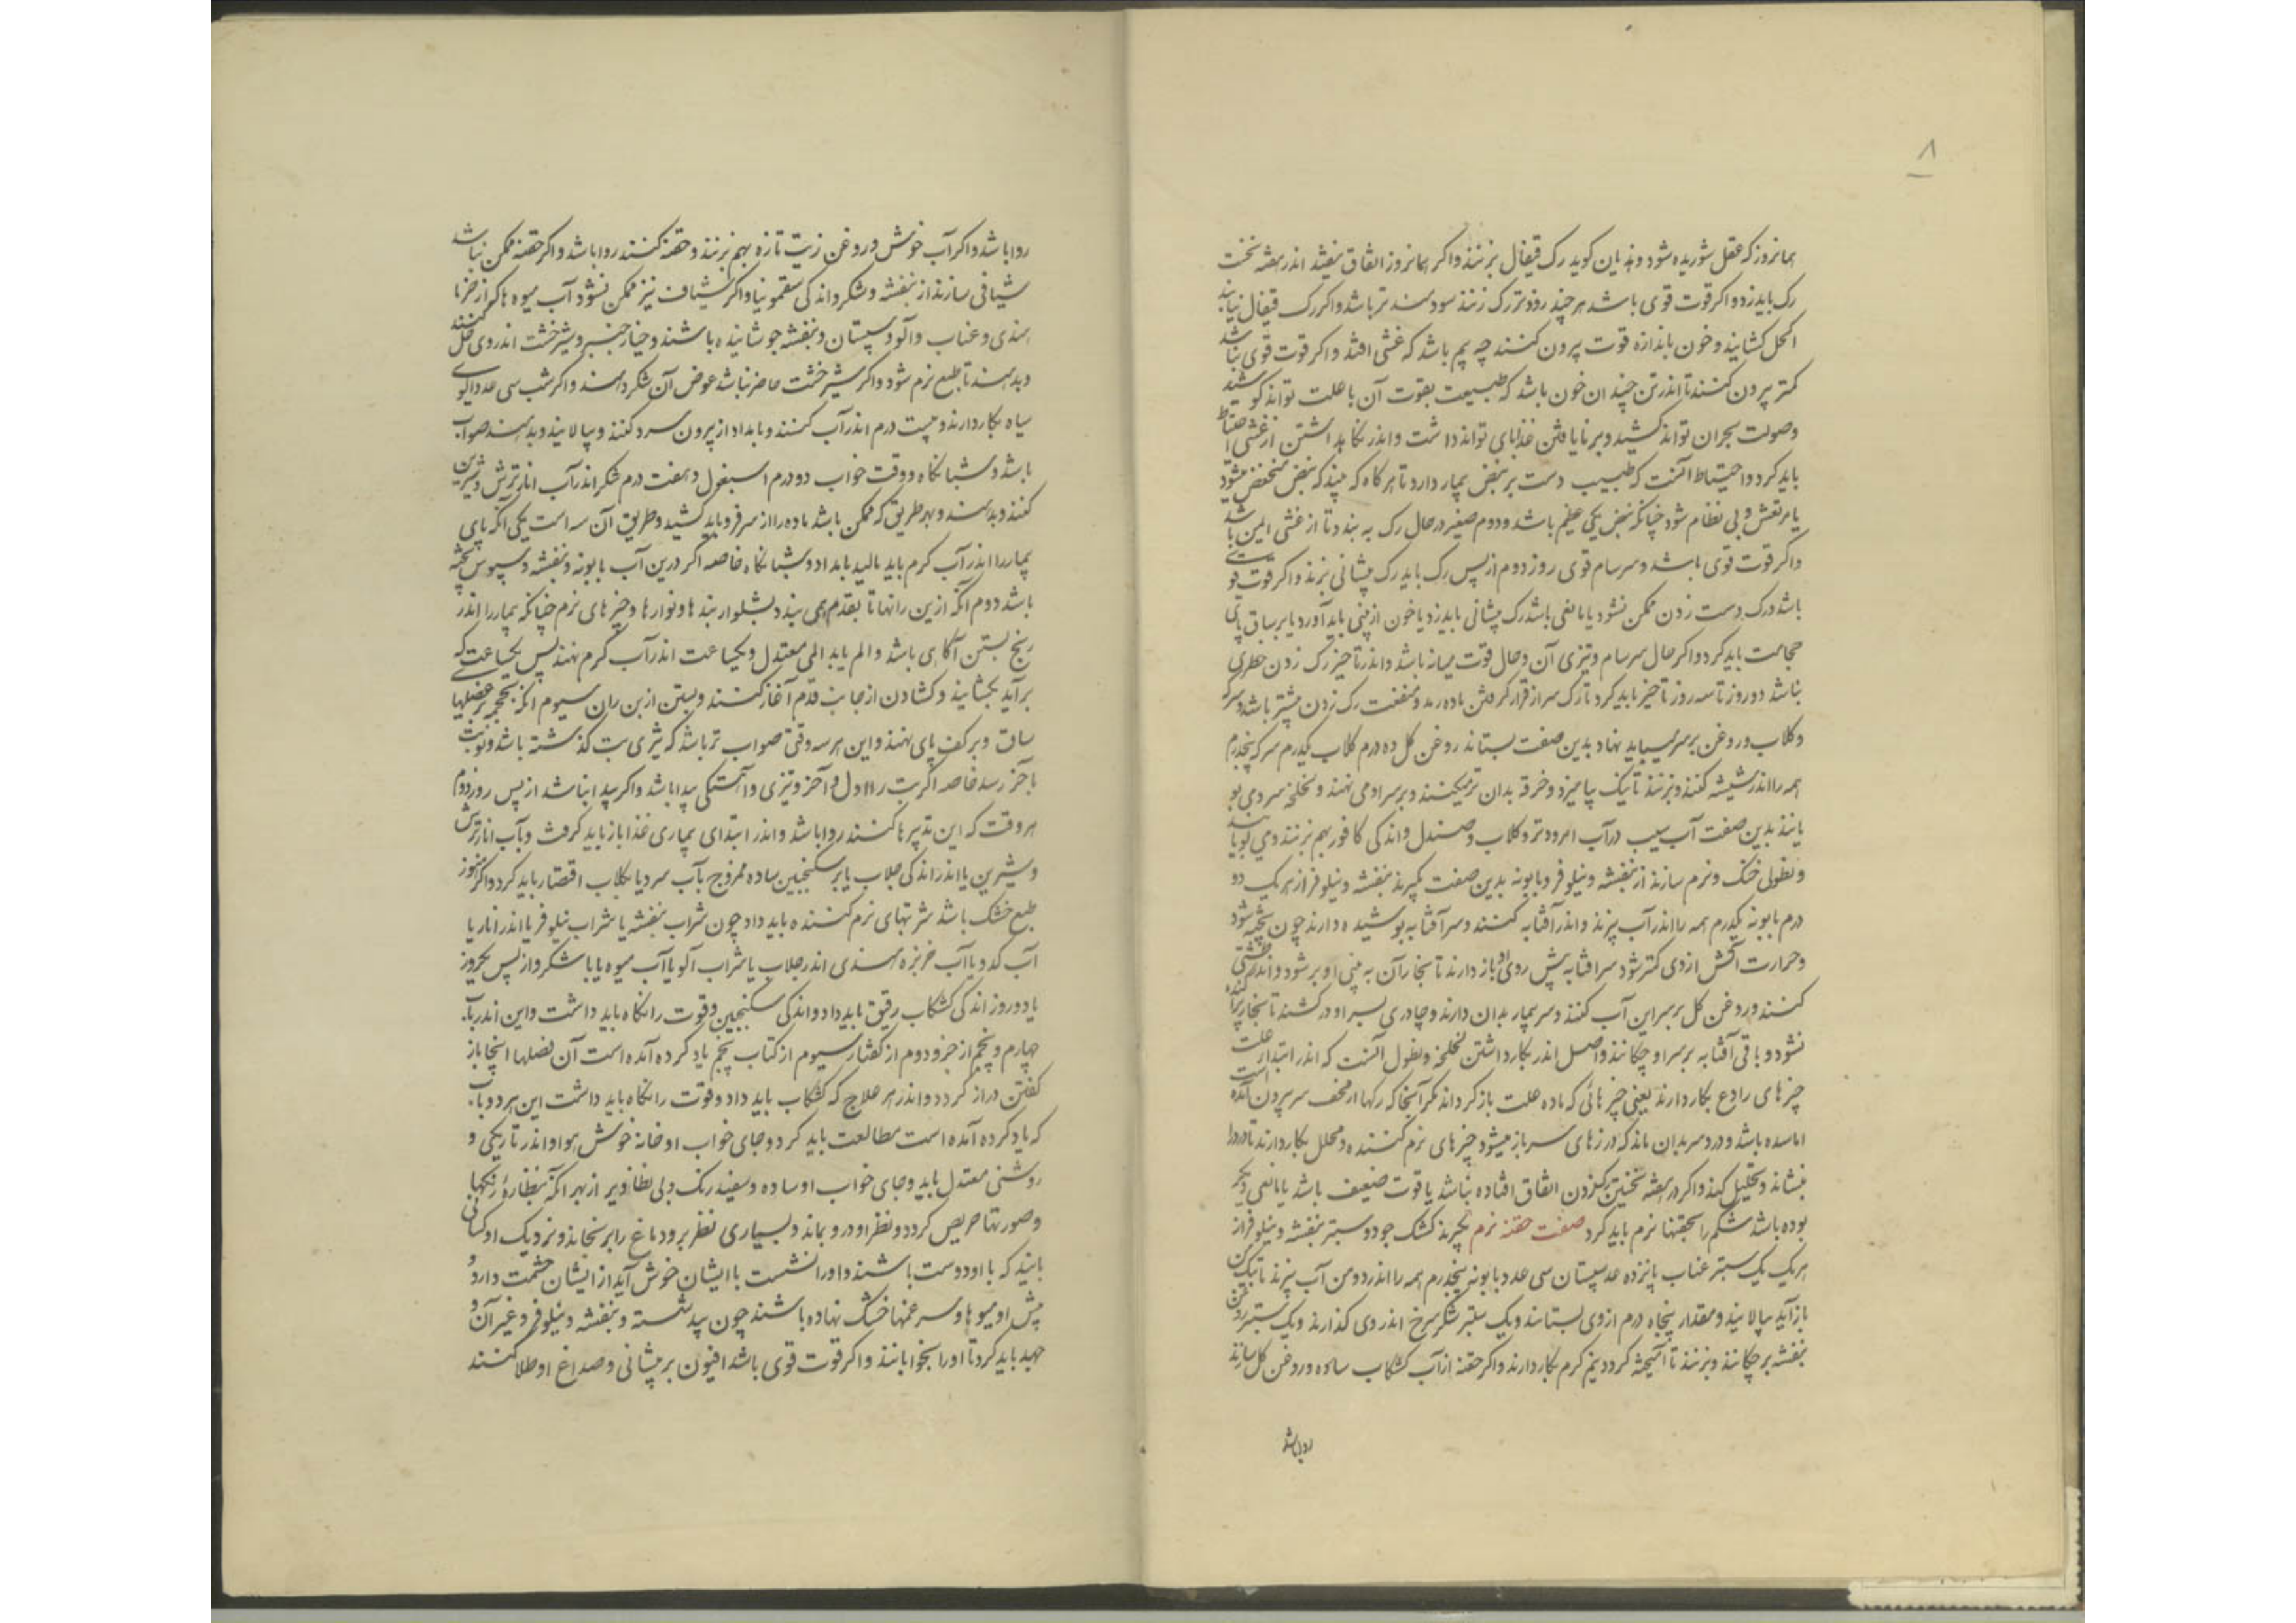 ۸
همانروز که عقل شوریده شود و هذیان کوید رک قیفال بزنند واکر همانروز اتفاق نیفتد اندر هفته نخست
رک باید زد و اکر قوت قوی باشد هر چند زودتر رک زنند سودمند تر باشد واکر رک قیفال نیابند
اکحل کشایند و خون باندازه قوت بیرون کنند چه بیم باشد که غشی افتد واکر قوت قوی نباشد
کمتر بیرون کنند تا اندر تن چندان خون باشد که طبیعت بقوت آن با علت تواند کوشید
وصولت بحران تواند کشید و بر نایافتن غذا پای تواند داشت واندر نکاه داشتن از غشی احتیاط
باید کرد واحتیاط آنست که طبیب دست بر نبض بیمار دارد تا هر کاه که بیند که نبض منخفض میشود
یا مرتعش و بی نظام شود چنانکه نبض یکی عظیم باشد و دوم صغیر در حال رک به بندد تا از غشی ایمن باشد
واکر قوت قوی باشد و سرسام قوی روز دوم از پس رک باید رک پیشانی بزند واکر قوت قوی
باشد و رک دست زدن ممکن نشود یا مانعی باشد رک پیشانی باید زد یا خون از بینی باید آورد یا بر ساق پای
حجامت باید کرد واکر حال سرسام و تیزی آن و حال قوت میانه باشد واندر تاخیر رک زدن خطری
نباشد دو روز تا سه روز تاخیر باید کرد تا رک سر از قرار کرفتن ماده رسد و منفعت رک زدن بیشتر باشد و سرکه
وکلاب و روغن بر سر میباید نهاد بدین صفت بستانند روغن کل ده درم کلاب یکدرم سرکه پنجدرم
همه را اندر شیشه کنند و بزنند تا نیک بیامیزد و خرقه بدان تر میکنند و بر سر او می نهند و لخلخه سرد می بو
یانند بدین صفت آب سیب و آب امرود تر و کلاب و صندل و اندکی کافور بهم بزنند و می بویانند
و نطولی خنک و نرم سازند از بنفشه و نیلوفر و بابونه بدین صفت بکیرند بنفشه و نیلوفر از هر یک دو
درم بابونه یکدرم همه را اندر آب بپزند و اندر آفتابه کنند و سر آفتابه پوشیده دارند چون پخته شود
و حرارت آتش از وی کمتر شود سر آفتابه پیش روی او باز دارند تا بخار آن به بینی او بر شود و اندر طشتی
کنند و روغن کل بر سر این آب کنند و سر بیمار بدان دارند و چادری بسر او در کشند تا بخار پراکنده
نشود و باقی آفتابه بر سر او چکانند و اصل اندر بکار داشتن لخلخه و نطول آنست که اندر ابتداء علت
چیزهای رادع بکار دارند یعنی چیزهائی که ماده علت باز کرداند مکر آنجا که رکها از قحف سر بیرون آمده است
اماسیده باشد و درد سر بدان ماند که درزهای سر باز میشود چیزهای نرم کننده و محلل بکار دارند تا درد را
بنشاند و تحلیل کند واکر در هفته نخستین رک زدن اتفاق افتاده نباشد یا قوت ضعیف باشد یا مانعی دیکر
بوده باشد شکم را بحقنها نرم باید کرد صفت حقنه نرم بکیرند کشک جو دو ستیر بنفشه و نیلوفر از
هر یک یک ستیر عناب پانزده عدد سپستان سی عدد و بابونه پنجدرم همه را اندر دو من آب بپزند تا بیک من
باز آید بپالایند و مقدار پنجاه درم از وی بستانند و یک ستیر شکر سرخ اندر وی کذارند و یک ستیر روغن
بنفشه بر چکانند و بزنند تا آمیخته کردد نیم کرم بکار دارند واکر حقنه از آب کشکاب ساده و روغن کل سازند
روا باشد
روا باشد واکر آب خوش و روغن زیت تازه بهم بزنند و حقنه کنند روا باشد واکر حقنه ممکن نباشد
شیافی سازند از بنفشه و شکر و اندکی سقمونیا واکر شیاف نیز ممکن نشود آب میوه ها که از خرما
هندی و عناب و آلو و سپستان و بنفشه جوشانیده باشند و خیار چنبر و شیرخشت اندر وی حل کنند
و بدهند تا طبع نرم شود واکر شیرخشت حاضر نباشد عوض آن شکر دهند واکر شب سی عدد آلوی
سیاه بکار دارند و بیست درم اندر آب کنند و بامداد از بیرون سرد کنند و بپالایند و بدهند صواب
باشد و شبانکاه و وقت خواب دو درم اسبغول و هفت درم شکر اندر آب انار ترش و شیرین
کنند و بدهند و بهر طریق که ممکن باشد ماده را از سر فرو باید کشید و طریق آن سه است یکی آنکه پای
بیمار را اندر آب کرم باید مالید بامداد و شبانکاه خاصه اکر درین آب بابونه و بنفشه و سبوس پخته
باشد دوم آنکه از بن رانها تا بقدم همی بندد بشلوار بندها و نوارها و چیزهای نرم چنانکه بیمار را اندر
رنج بستن آکاهی باشد و الم یابد المی معتدل و یکساعت اندر آب کرم نهند پس یکساعت که
برآید بکشایند و کشادن از جانب قدم آغاز کنند و بستن از بن ران سیوم آنکه محجمه بر عضلهای
ساق و بر کف پای نهند و این هر سه وقتی صواب تر باشد که تیزی تب کذشته باشد و نوبت
بآخر رسد خاصه اکر تب را اول و آخر و تیزی و آهستکی پیدا باشد واکر پیدا نباشد از پس روز دوم
هر وقت که این تدبیرها کنند روا باشد و اندر ابتدای بیماری غذا باز باید کرفت و بآب انار ترش
و شیرین یا اندر اندکی جلاب یا بر سکنجبین ساده ممزوج بآب سرد یا بکلاب اقتصار باید کرد واکر هنوز
طبع خشک باشد شربتهای نرم کننده باید داد چون شراب بنفشه یا شراب نیلوفر یا اندر انار یا
آب کدو یا آب خربزه هندی اندر جلاب یا شراب آلو یا آب میوه یا با شکر و از پس یکروز
یا دو روز اندکی کشکاب رقیق باید داد و اندکی سکنجبین و قوت را نکاه باید داشت و این اندر باب
چهارم و پنجم از جزو دوم از کفتار سیوم از کتاب پنجم یاد کرده آمده است آن فصلها اینجا باز
کفتن دراز کردد و اندر هر علاج که کشکاب باید داد و قوت را نکاه باید داشت این هر دو باب
که یاد کرده آمده است مطالعت باید کرد و جای خواب او خانه خوش هوا و اندر تاریکی و
روشنی معتدل باید و جای خواب او ساده و سفید رنک و بی تصاویر از بهر آنکه بنظاره رنکها
و صورتها حریص کردد و نظر او درو بماند و بسیاری نظر برو دماغ را برنجاند و نزدیک او کسانی
باید که با او دوست باشند و او را نشست با ایشان خوش آید از ایشان حشمت دارد و
پیش او میوها و سپرغمها خشک نهاده باشند چون بید شسته و بنفشه و نیلوفر و غیر آن و
جهد باید کرد تا او را بخوابانند واکر قوت قوی باشد افیون بر پیشانی و صداغ او طلا کنند